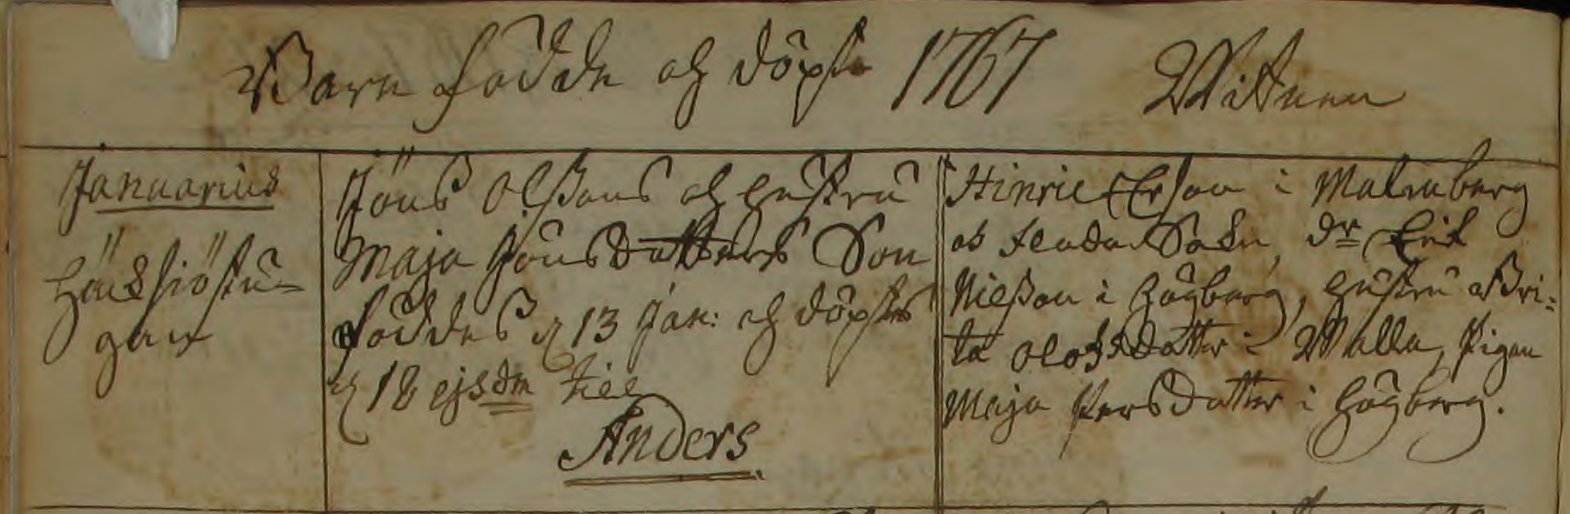 Barn födde och döpte 1767 Wittnen
Januarius
Höksiöstu-
gan
Jöns Olssons och hustru
Maja Jönsdotters Son
föddes d. 13 Jan: och döptes
d. 18 ejsdm till
Anders
Hinric Erson i Malmberg
Sokn, dr Erik
Nilsson i Högberg, hustru Bri:
ta Olofsdotter i Walla, Pigan
Maja Persdotter i Högberg.